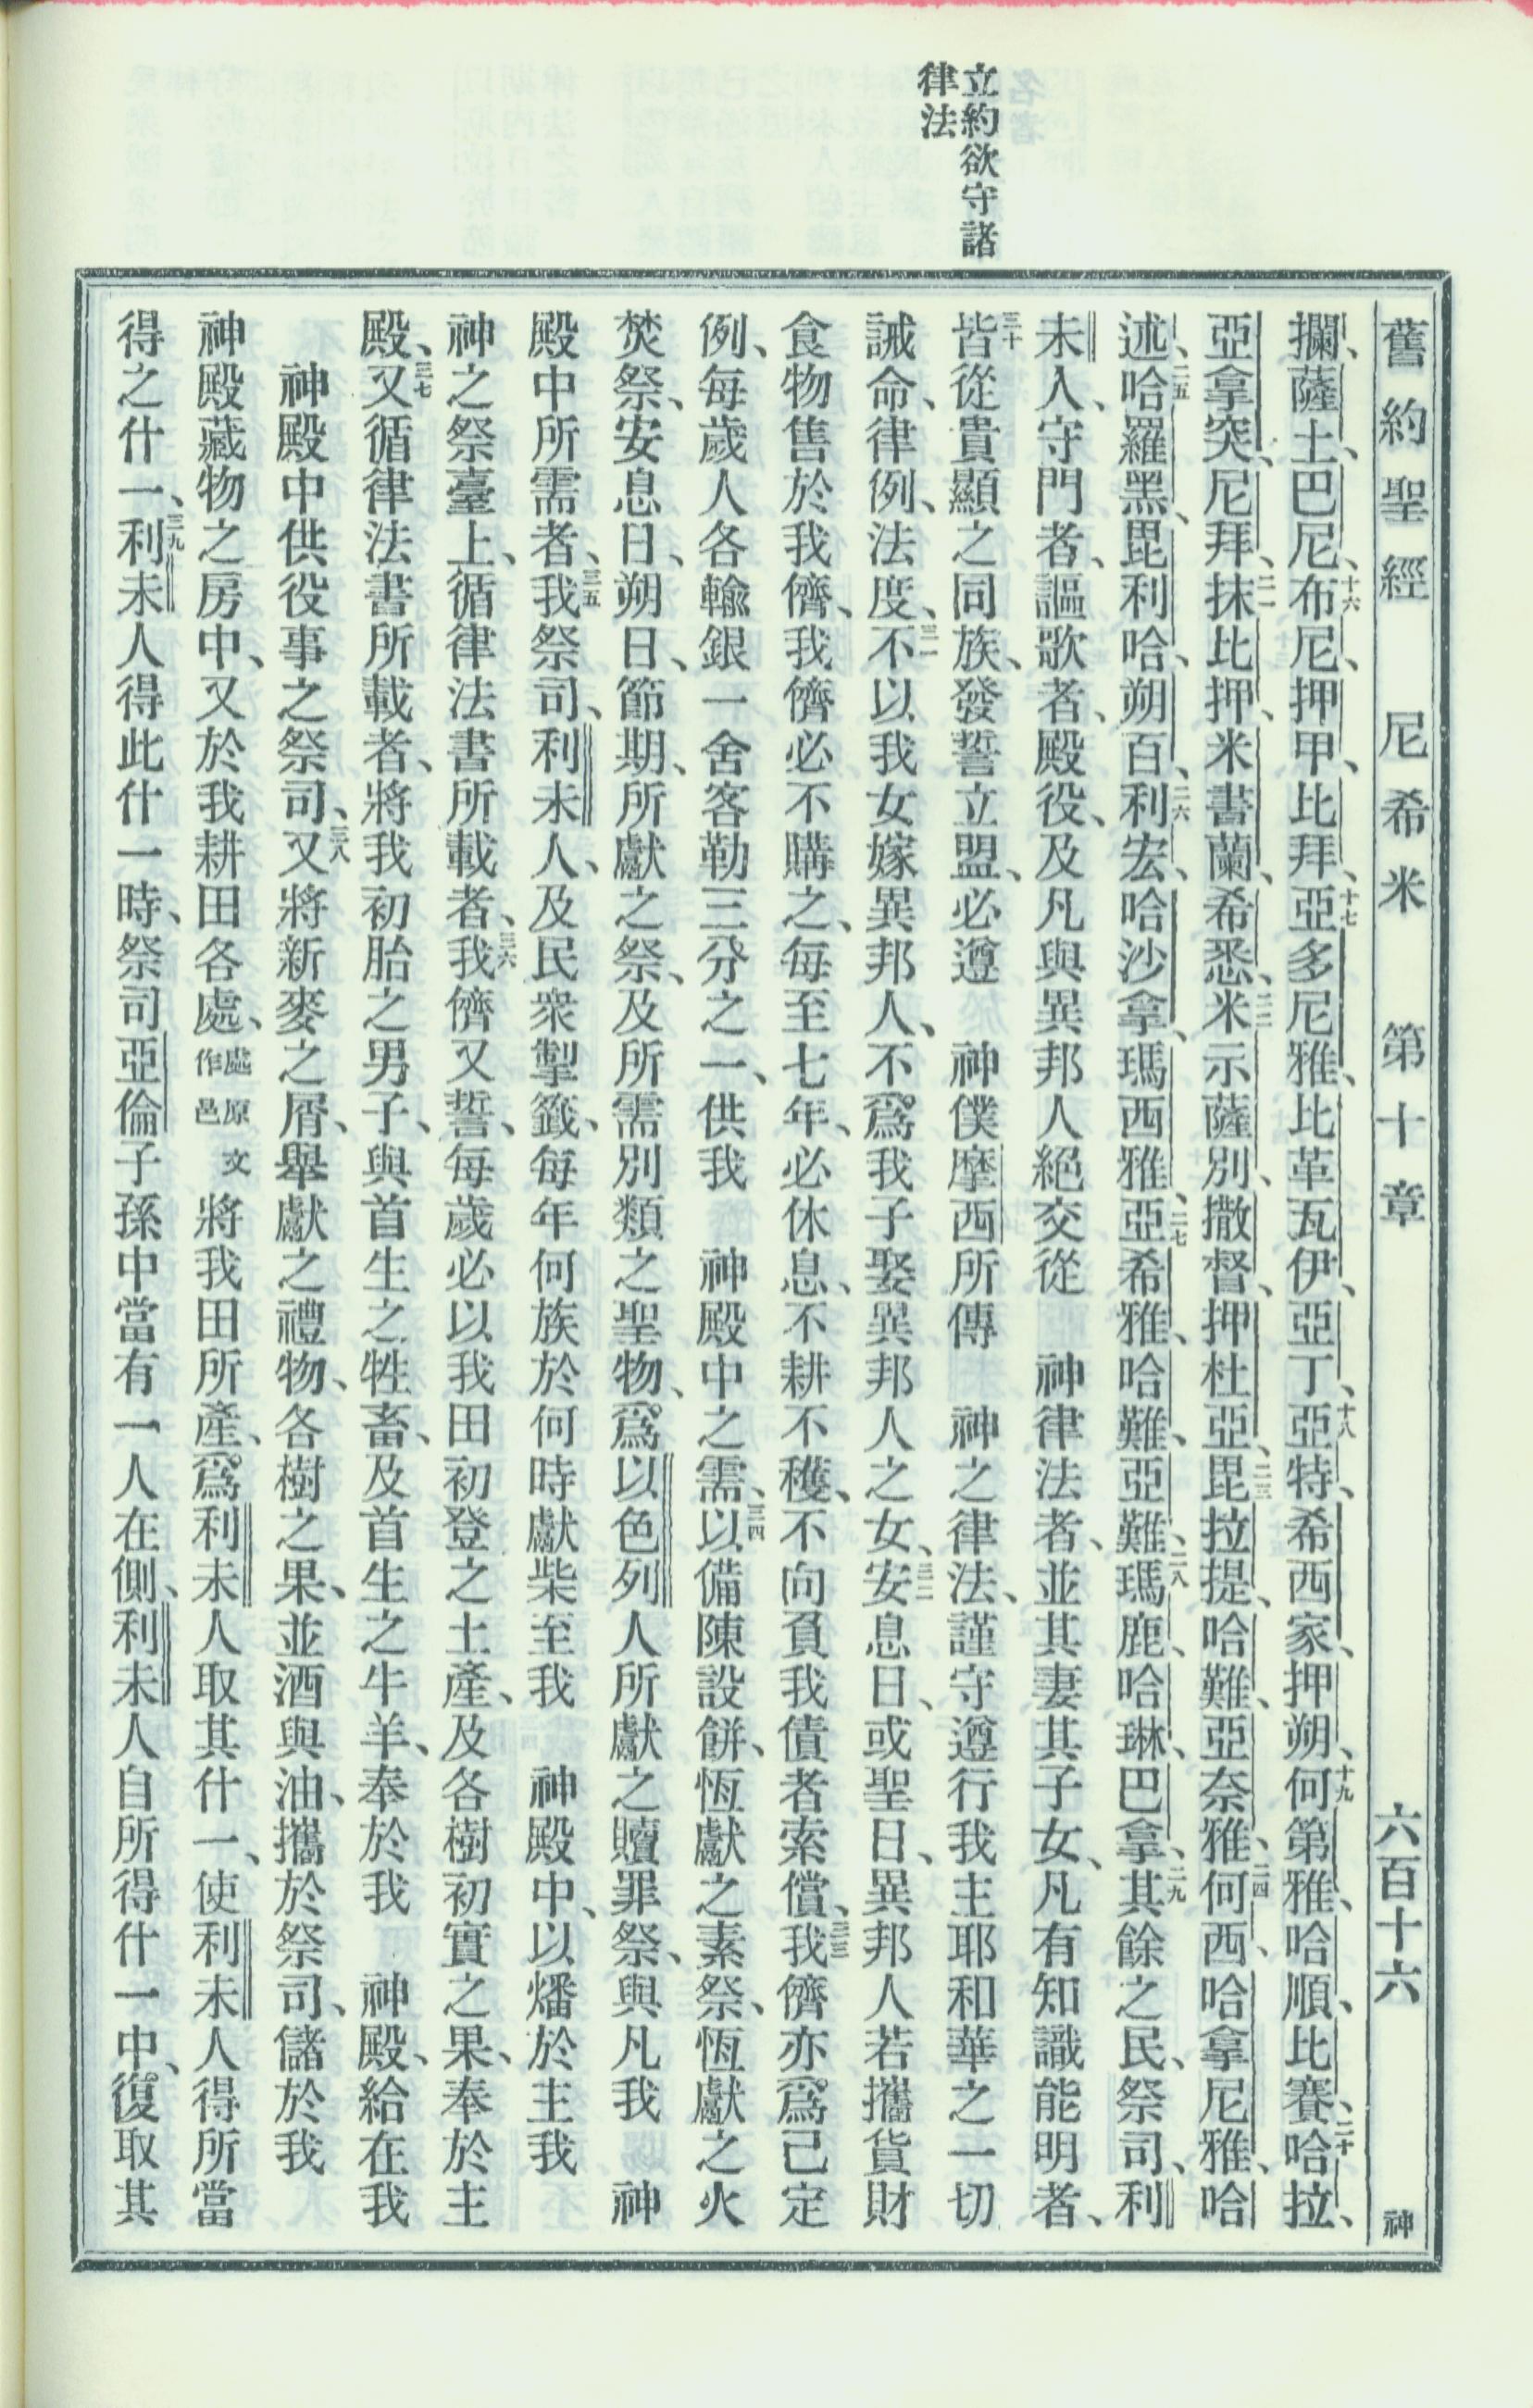 立約欲守諸
律法
舊約聖經 尼希米 第十章 六百十六 神
攔、薩土、巴尼、十六布尼、押甲、比拜、十七亞多尼雅、比革瓦伊、亞丁、十八亞特、希西家、押朔、十九何第雅、哈順、比賽、二十哈拉、
亞拿突、尼拜、二一抹比押、米書蘭、希悉、二二米示薩別、撒督、押杜亞、二三毘拉提、哈難、亞奈雅、二四何西、哈拿尼雅、哈
述、二五哈羅黑、毘利哈、朔百、二六利宏、哈沙拿、瑪西雅、二七亞希雅、哈難、亞難、二八瑪鹿、哈琳、巴拿、二九其餘之民、祭司、利
未人、守門者、謳歌者、殿役、及凡與異邦人絕交從 神律法者、並其妻其子女、凡有知識能明者、
三十皆從貴顯之同族、發誓立盟、必遵 神僕摩西所傳 神之律法、謹守遵行我主耶和華之一切
誡命、律例、法度、三一不以我女嫁異邦人、不爲我子娶異邦人之女、三二安息日、或聖日、異邦人若攜貨財
食物售於我儕、我儕必不購之、每至七年、必休息、不耕不穫、不向負我債者索償、三三我儕亦爲己定
例、每歲人各輸銀一舍客勒三分之一、供我 神殿中之需、三四以備陳設餅、恆獻之素祭、恆獻之火
焚祭、安息日、朔日、節期、所獻之祭、及所需別類之聖物、爲以色列人所獻之贖罪祭、與凡我 神
殿中所需者、三五我祭司、利未人、及民衆掣籤、每年何族於何時獻柴至我 神殿中、以燔於主我
神之祭臺上、循律法書所載者、三六我儕又誓、每歲必以我田初登之土產、及各樹初實之果、奉於主
殿、三七又循律法書所載者、將我初胎之男子、與首生之牲畜、及首生之牛羊、奉於我 神殿、給在我
神殿中供役事之祭司、三八又將新麥之屑、舉獻之禮物、各樹之果、並酒與油、攜於祭司、儲於我
神殿藏物之房中、又於我耕田各處、處原文作邑 將我田所產、爲利未人取其什一、使利未人得所當
得之什一、三九利未人得此什一時、祭司亞倫子孫中當有一人在側、利未人自所得什一中、復取其